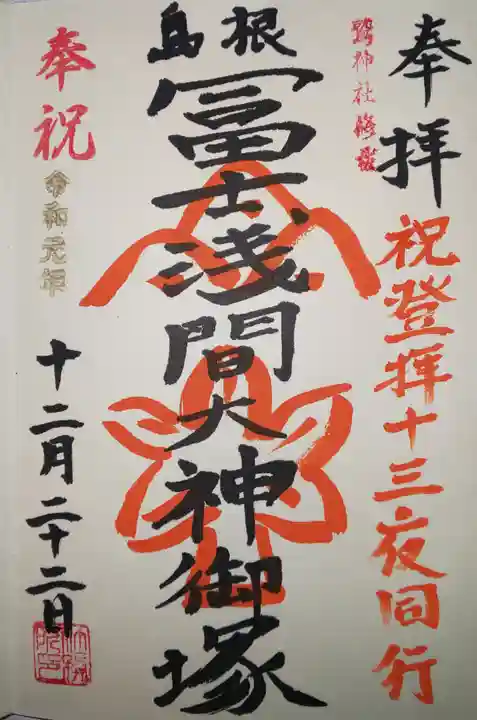 奉拝
祝登拝十三夜同行
鷲神社修蔵
島根
冨士浅間大神御塚
奉祝
令和元年
十二月二十二日